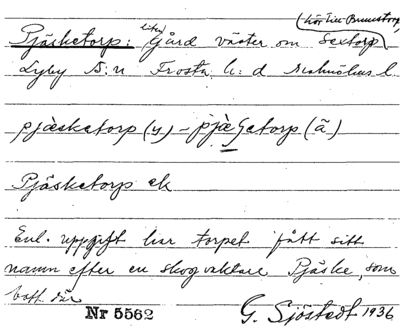 (hör till Brunstorp)
Pjäsketorp: liten Gård väster om Sextorp
Lyby S:n Frosta h:d Malmöhus l.
pjäsketorp (y) – pjäsketorp (ä)
Pjäsketorp ek
Enl. uppgift har torpet fått sitt
namn efter en skogvaktare Pjäske, som
bott där
Nr 5562
G. Sjöstedt 1936